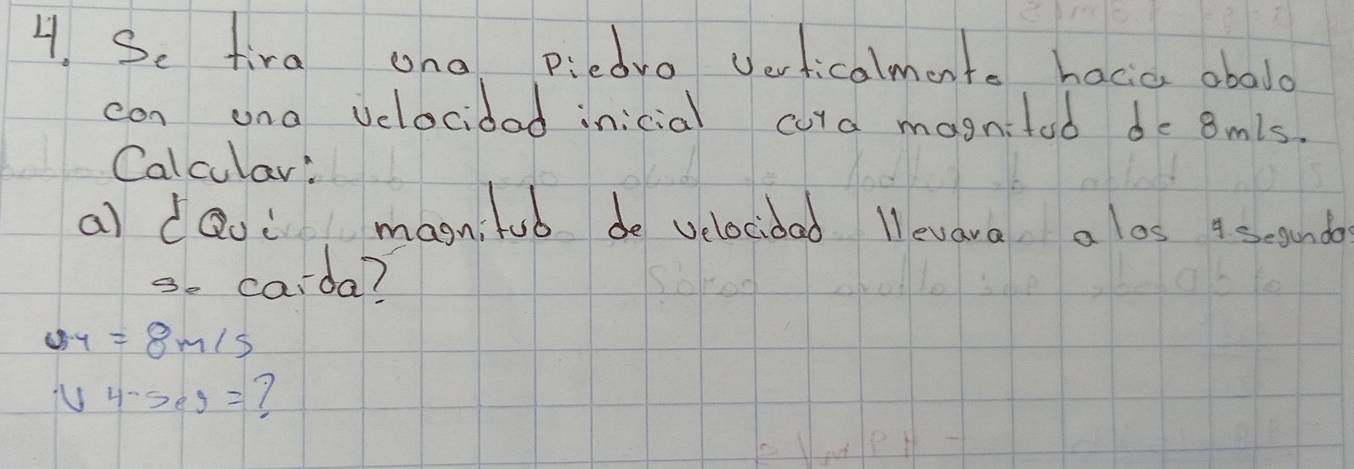 4. Se tira una piedra verticalmente hacia abajo
con una velocidad inicial cuya magnitud de 8m/s.
Calcular:
a) ¿Qué magnitud de velocidad llevara a los 4 segundos
se caida?
= 8m/s
V 4-seg = ?